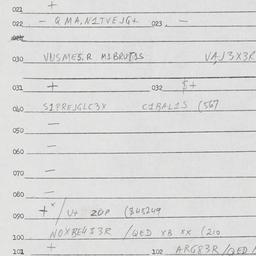 021 +
022 - QMA,N1TVEJG+ 023. -
030 VUSMES.R M1BRUT1S VAJ3X3R
031 + 032 $+
040 S1PREJGLC3X C1BAL1S (567
050 —
060 —
070 —
080 —
090 +x/ U+ ZOP (3.45249
100 WOXBE4I3R /QED XB XX (210
101 + 102 ARG83R/QED